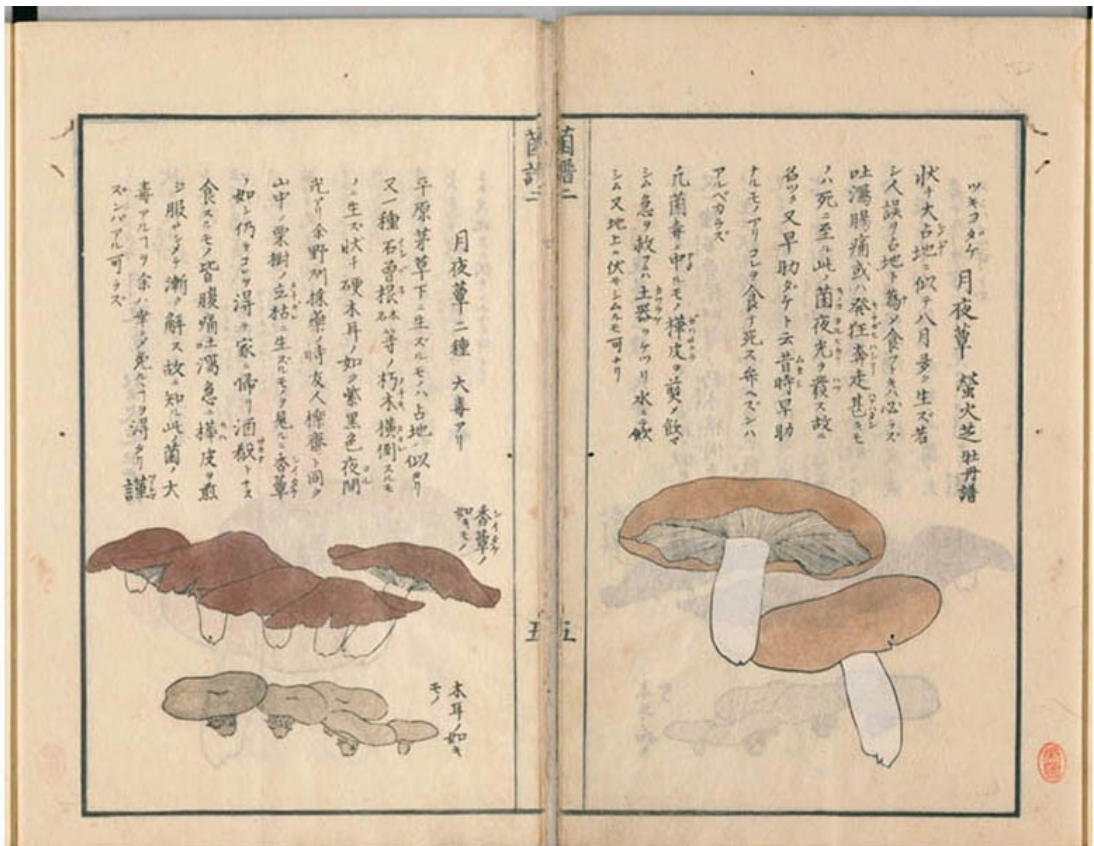 月夜蕈 螢火芝 牡丹譜
ツキヨダケ
状チ大占地ニ似テ八月多ク生ズ若
シ人誤リ占地ト為メ食フトキハ必ラズ
吐瀉腸痛或ハ発狂奔走甚キモ
ノハ死ニ至ル此菌夜光ヲ發ス故ニ
名ツク又早助ダケト云昔時早助
ナルモノアリコレヲ食テ死ス弁ヘズンハ
アルベカラズ
凡菌毒ニ中ルモノ樺皮ヲ煎メ飲マ
シム急ヲ救フハ土器ヲケツリ水ニテ飲
シム又地上ニ伏サシムルモ可ナリ
菌譜二
五
月夜蕈二種 大毒アリ
平原茅草下ニ生ズルモノハ占地ニ似タリ
又一種石曽根 等ノ朽木横倒スルモ
ノニ生ズ状チ硬木耳ノ如ク紫黒色夜間
光アリ余野州採藥ノ時友人 齋ト同ク
山中ノ栗樹ノ立枯ニ生ズルモノヲ見ルニ香蕈
ノ如シ仍テコレヲ得テ家ニ帰リ酒殽トナス
食スルモノ皆腹痛吐瀉急ニ樺皮ヲ煎
ジ服サシメテ漸ク解ス故ニ知ル此ノ菌ノ大
毒アルヿヲ余ハ幸ニメ免ルヽヿヲ得タリ謹
ズンバアル可ラズ
香蕈ノ
シイタケ
如キモノ
木耳ノ如キ
モノ